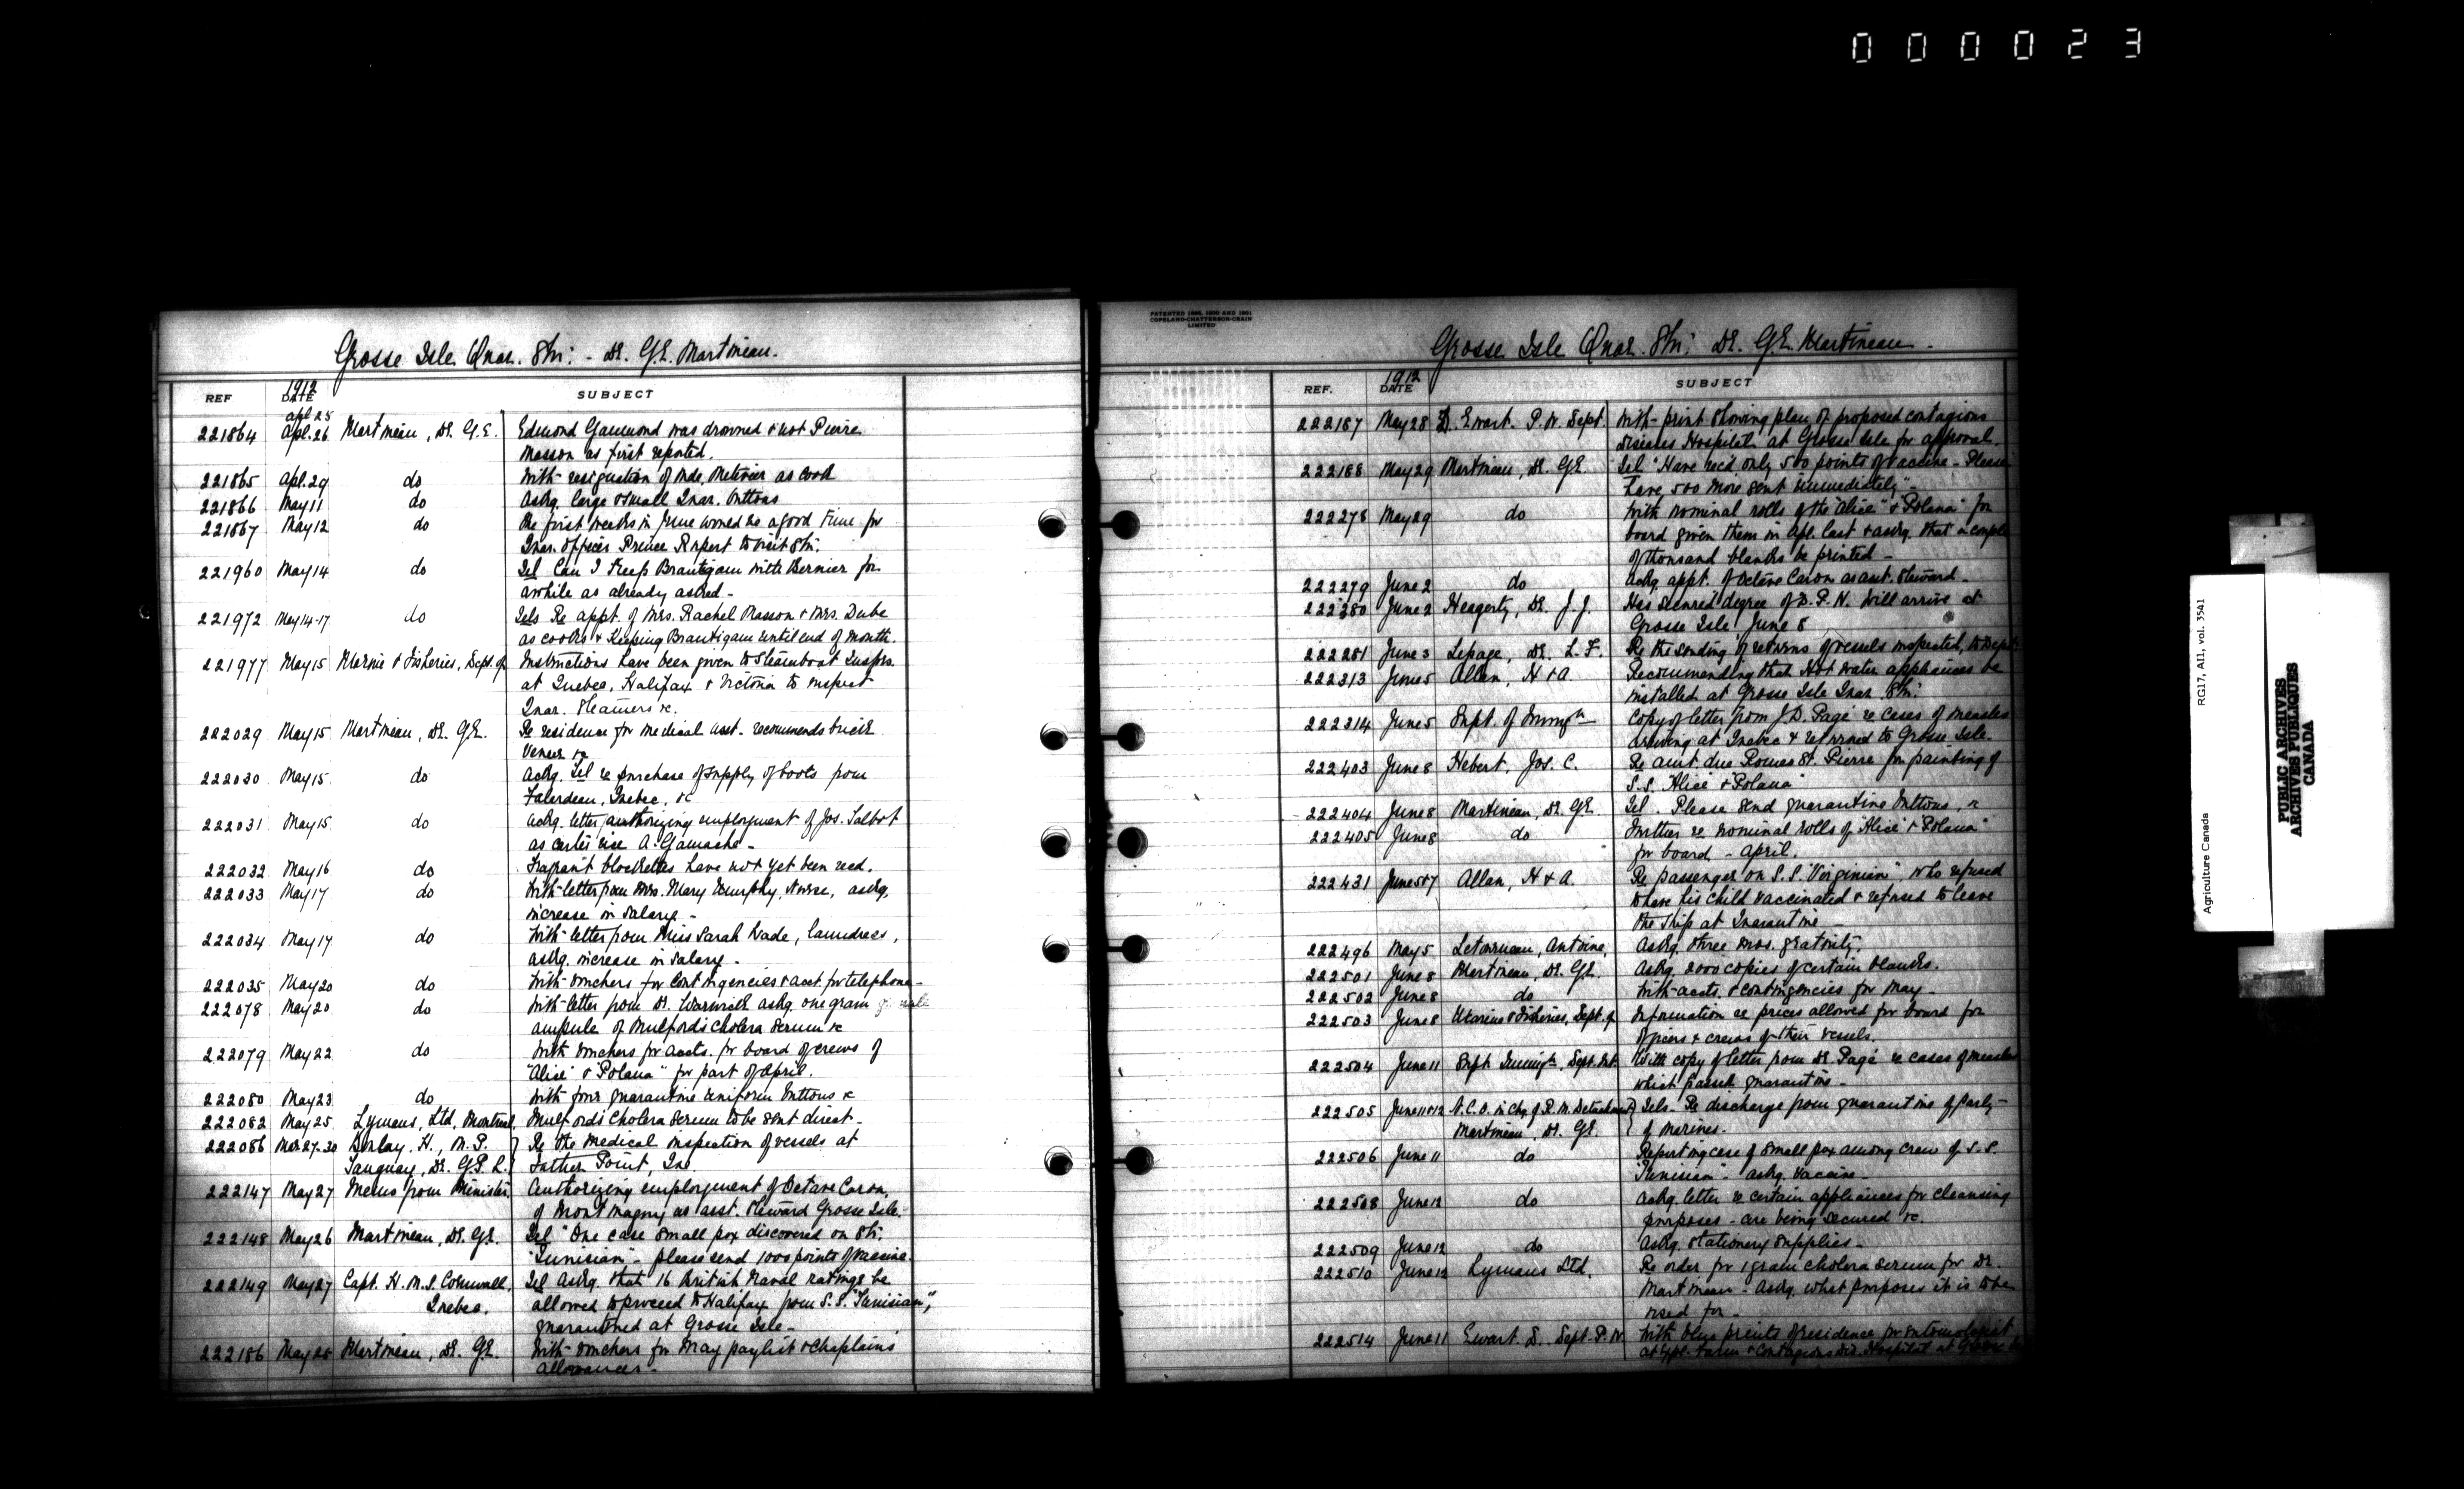 000023
Grosse Isle Quar. Stn: - Dr. G.E. Martineau.
REF 1912 DATE SUBJECT
Apl. 25
221864 Apl. 26 Martineau, Dr. G.E. Edmond Gammond was drowned & not Pierre
Masson as first reported.
221865 Apl. 29 do With resignation of Mde. Metivier as Cook
221866 May 11 do Askg. large & small Quar. buttons
221867 May 12 do Re first weeks in June would be a good time for
Quar. officer Prince Rupert to visit Stn.
221960 May 14 do Tel Can I Keep Brautigam with Bernier for
awhile as already asked -
221972 May 14-17 do Tels Re appt. of Mrs. Rachel Masson & Mrs. Dube
as cooks & Keeping Brautigam until end of month.
221977 May 15 Marine & Fisheries, Dept. of Instructions have been given to Steamboat Insprs.
at Quebec, Halifax & Victoria to inspect
Quar. Steamers &c.
222029 May 15 Martineau, Dr. G.E. Re residence for medical asst. recommends brick
Veneer &c
222030 May 15 do Ackg. Tel re purchase of supply of boots from
Falardeau, Quebec, &c
222031 May 15 do Ackg. letter authorizing employment of Jos. Talbot
as carter vice A. Gamache -
222032 May 16 do Fragrant blockettes have not yet been recd.
222033 May 17 do With letter from Mrs. Mary Murphy, Nurse, askg.
increase in salary -
222034 May 17 do With letter from Miss Sarah Wade, laundress,
askg. increase in salary.
222035 May 20 do With vouchers for Contingencies & acct. for telephone -
222078 May 20 do With letter from Dr. Warwick askg. one gram
ampule of Mulford's Cholera Serum &c
222079 May 22 do With vouchers for accts. for board of crews of
"Alice" & "Polana" for part of April.
222080 May 23 do With four quarantine uniform buttons &c
222082 May 25 Lymans, Ltd, Montreal, Mulford's Cholera Serum to be sent direct -
222086 Mar 27-30 H., M.P. Re the medical inspection of vessels at
Tanguay, Dr. G.P.L. Father Point, Que
222147 May 27 Memo from Minister, Authorizing employment of Octave Caron,
of Montmagny as asst. Steward Grosse Isle.
222148 May 26 Martineau, Dr. G.E. Tel "One case Small pox discovered on Str.
"Tunisian" - please send 1000 points of vaccine.
222149 May 27 Capt. H.M.S. Cornwall, Tel Askg. that 16 British Naval ratings be
Quebec. allowed to proceed to Halifax from S.S. "Tunisian",
quarantined at Grosse Isle -
222186 May 28 Martineau, Dr. G.E. With vouchers for May paylist & Chaplains
allowances -
PATENTED 1898, 1900 AND 1901
COPELAND-CHATTERSON-CRAIN
LIMITED
Grosse Isle Quar. Stn: Dr. G.E. Martineau -
REF. 1912 DATE SUBJECT
222187 May 28 D. Ewart. P.W. Dept. With print showing plan of proposed contagious
diseases Hospital at Grosse Isle for approval.
222188 May 29 Martineau, Dr. G.E. Tel "Have rec'd only 500 points of vaccine - Please
have 500 more sent immediately" -
222278 May 29 do With nominal rolls of the "Alice" & "Polana" for
board given them in Apl. last & askg. that a couple
of thousand blanks be printed -
222279 June 2 do Askg. appt. of Octave Caron as asst. Steward -
222280 June 2 Heagerty, Dr. J.J. Has secured degree of D.P.H. Will arrive at
Grosse Isle June 8
222281 June 3 Lepage, Dr. L.F. Re the sending of returns of vessels inspected, to Dept.
222313 June 5 Allan, H & A. Recommending that Hot water appliances be
installed at Grosse Isle Quar. Stn:
222314 June 5 Supt. of Immign Copy of letter from J.D. Pagé re cases of measles
arriving at Quebec & returned to Grosse Isle -
222403 June 8 Hebert, Jos. C. Re amt. due Romeo St. Pierre for painting of
S.S. "Alice" & "Polana"
222404 June 8 Martineau, Dr. G.E. Tel. Please send quarantine buttons, &c
222405 June 8 do Further re nominal rolls of "Alice" & "Polana"
for board - April.
222431 June 5&7 Allan, H & A. Re passenger on S.S. "Virginian", who refused
to have his child vaccinated & refused to leave
the ship at Quarantine -
222496 May 5 Letourneau, Antoine, Askg. three mos. gratuity.
222501 June 8 Martineau, Dr. G.E. Askg. 2000 copies of certain blanks.
222502 June 8 do With accts. & contingencies for May -
222503 June 8 Marine & Fisheries, Dept. of Information re prices allowed for board for
officers & crews of their vessels.
222504 June 11 Supt Immign, Dept. Int. With copy of letter from Dr. Pagé re cases of measles
which passed quarantine -
222505 June 11&12 N.C.O. in chg. of R.M. Detachment Tels - Re discharge from quarantine of party
Martineau, Dr. G.E. of Marines -
222506 June 11 do Reporting case of Small pox among crew of S.S.
"Tunisian" - askg. vaccine -
222508 June 12 do Ackg. letter re certain appliances for cleansing
purposes - are being secured &c.
222509 June 12 do Askg. stationery supplies -
222510 June 12 Lymans Ltd. Re order for 1 gram cholera serum for Dr.
Martineau - Askg. what purposes it is to be
used for -
222514 June 11 Ewart. D. Dept. P.W. With blue prints of residence for entomologist
at Expl. Farm & Contagious Dis. Hospital at Grosse
Agriculture Canada RG17, AII, vol. 3541
PUBLIC ARCHIVES
ARCHIVES PUBLIQUES
CANADA